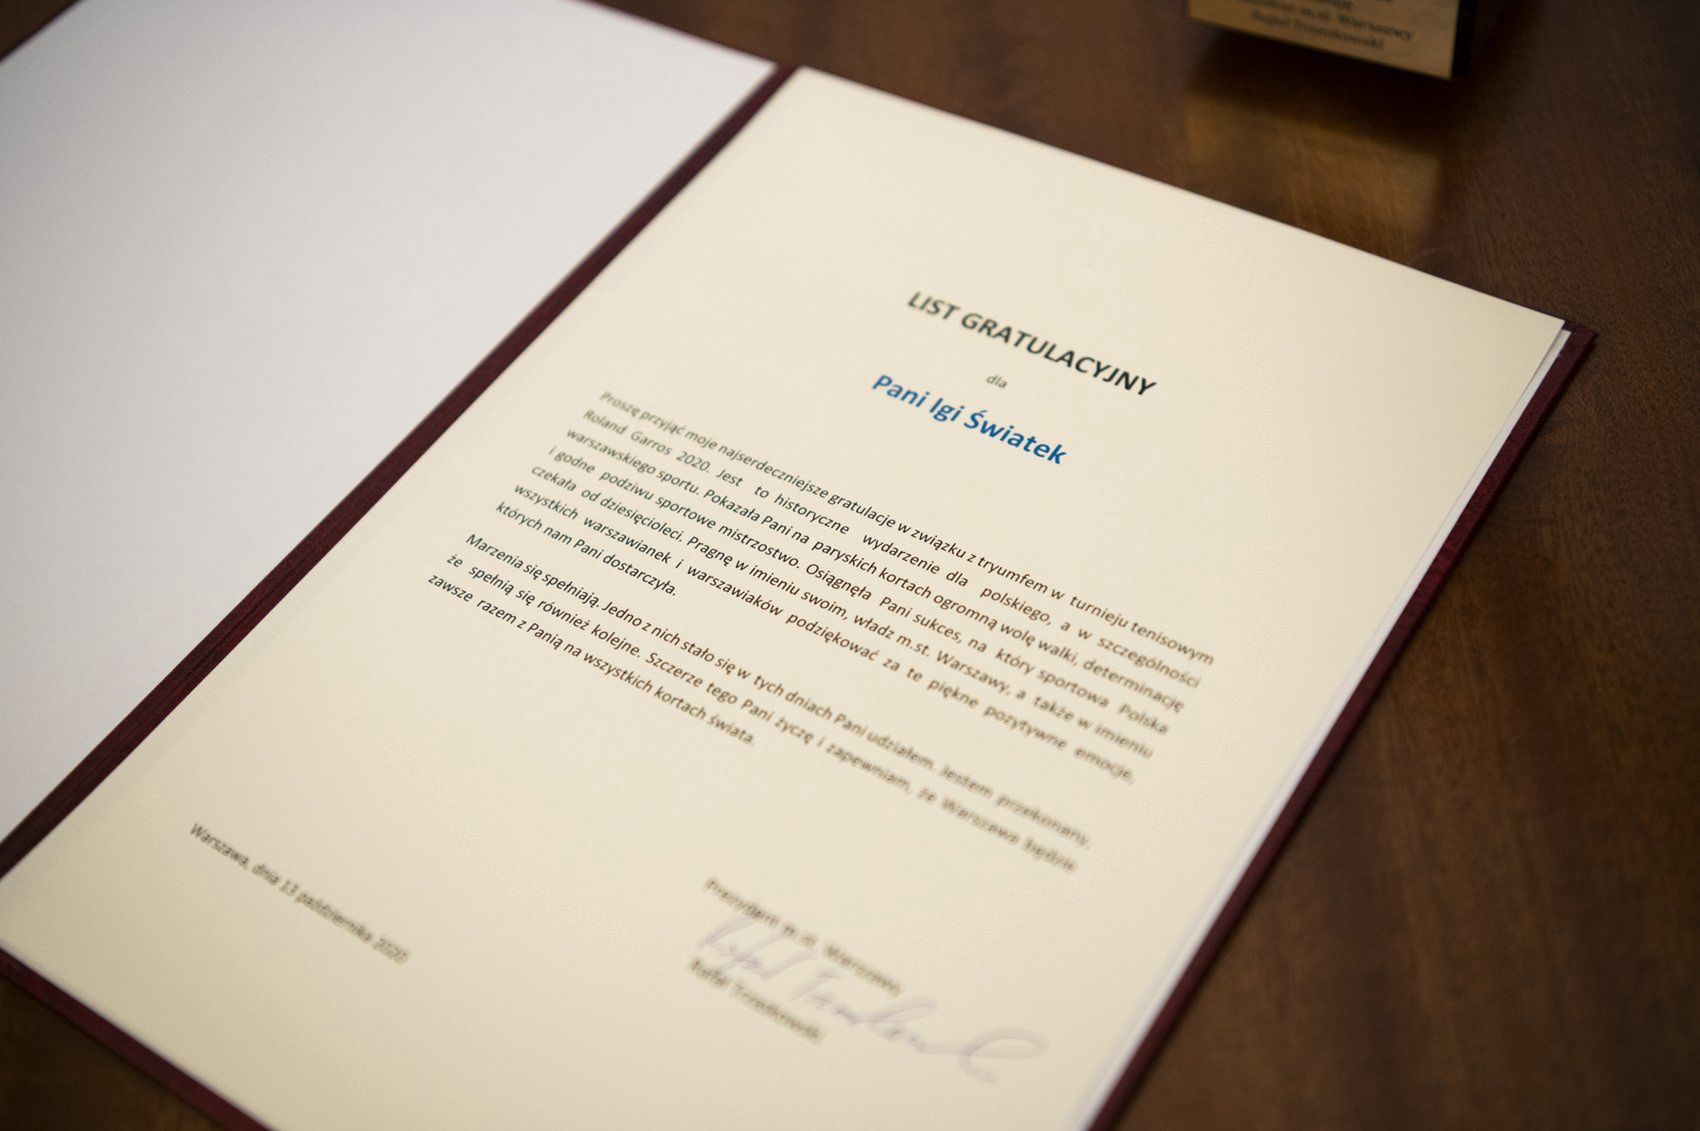 m.st. Warszawy
Rafał Trzaskowski
LIST GRATULACYJNY
dla
Pani Igi Świątek
Proszę przyjąć moje najserdeczniejsze gratulacje w związku z tryumfem w turnieju tenisowym
Roland Garros 2020. Jest to historyczne wydarzenie dla polskiego, a w szczególności
warszawskiego sportu. Pokazała Pani na paryskich kortach ogromną wolę walki, determinację
i godne podziwu sportowe mistrzostwo. Osiągnęła Pani sukces, na który sportowa Polska
czekała od dziesięcioleci. Pragnę w imieniu swoim, władz m.st. Warszawy, a także w imieniu
wszystkich warszawianek i warszawiaków podziękować za te piękne pozytywne emocje,
których nam Pani dostarczyła.
Marzenia się spełniają. Jedno z nich stało się w tych dniach Pani udziałem. Jestem przekonany,
że spełnią się również kolejne. Szczerze tego Pani życzę i zapewniam, że Warszawa będzie
zawsze razem z Panią na wszystkich kortach świata.
Warszawa, dnia 13 października 2020
Prezydent m.st. Warszawy
Rafał Trzaskowski